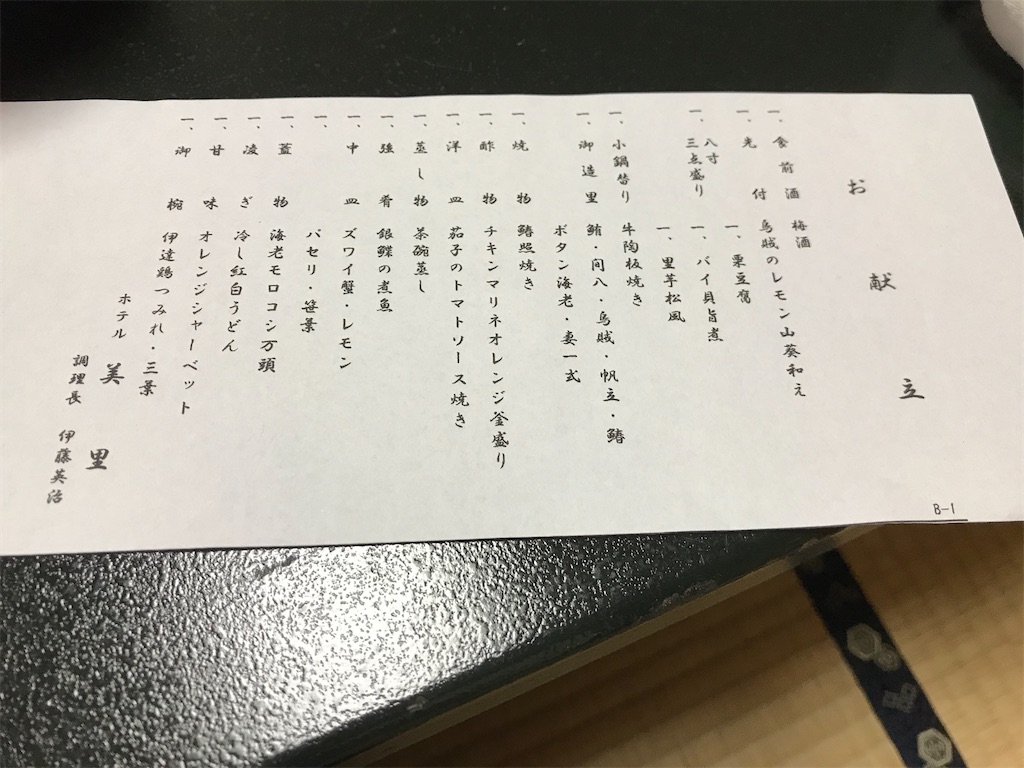 お献立
一、食前酒 梅酒
一、先付 烏賊のレモン山葵和え
一、八寸三点盛り
一、栗豆腐
一、バイ貝旨煮
一、里芋松風
一、小鍋替り 牛陶板焼き
一、御造里 鮪・間八・烏賊・帆立・鰆
ボタン海老・妻一式
一、焼物 鰆照焼き
一、酢物 チキンマリネオレンジ釜盛り
一、洋皿 茄子のトマトソース焼き
一、蒸し物 茶碗蒸し
一、強肴 銀鰈の煮魚
一、中皿 ズワイ蟹・レモン
一、 パセリ・笹葉
一、蓋物 海老モロコシ万頭
一、凌ぎ 冷し紅白うどん
一、甘味 オレンジシャーベット
一、御椀 伊達鶏つみれ・三葉
ホテル 美里
調理長 伊藤英治
B-1